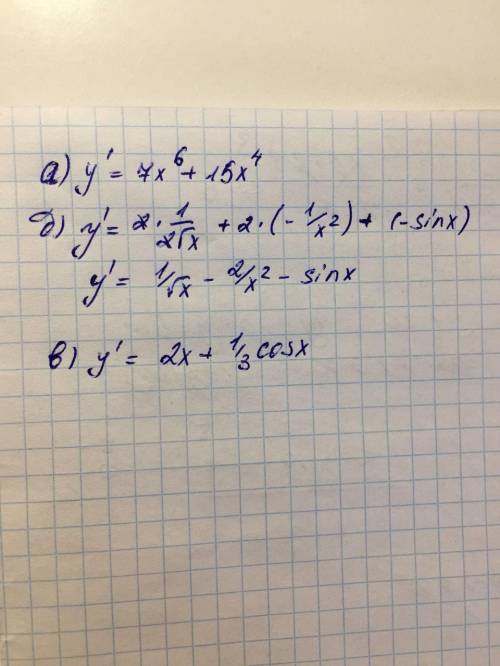 а) y' = 7x⁶ + 15x⁴
б) y' = 2 · 1/2√x + 2 · (- 1/x²) + (-sinx)
y' = 1/√x - 2/x² - sinx
в) y' = 2x + 1/3 cosx